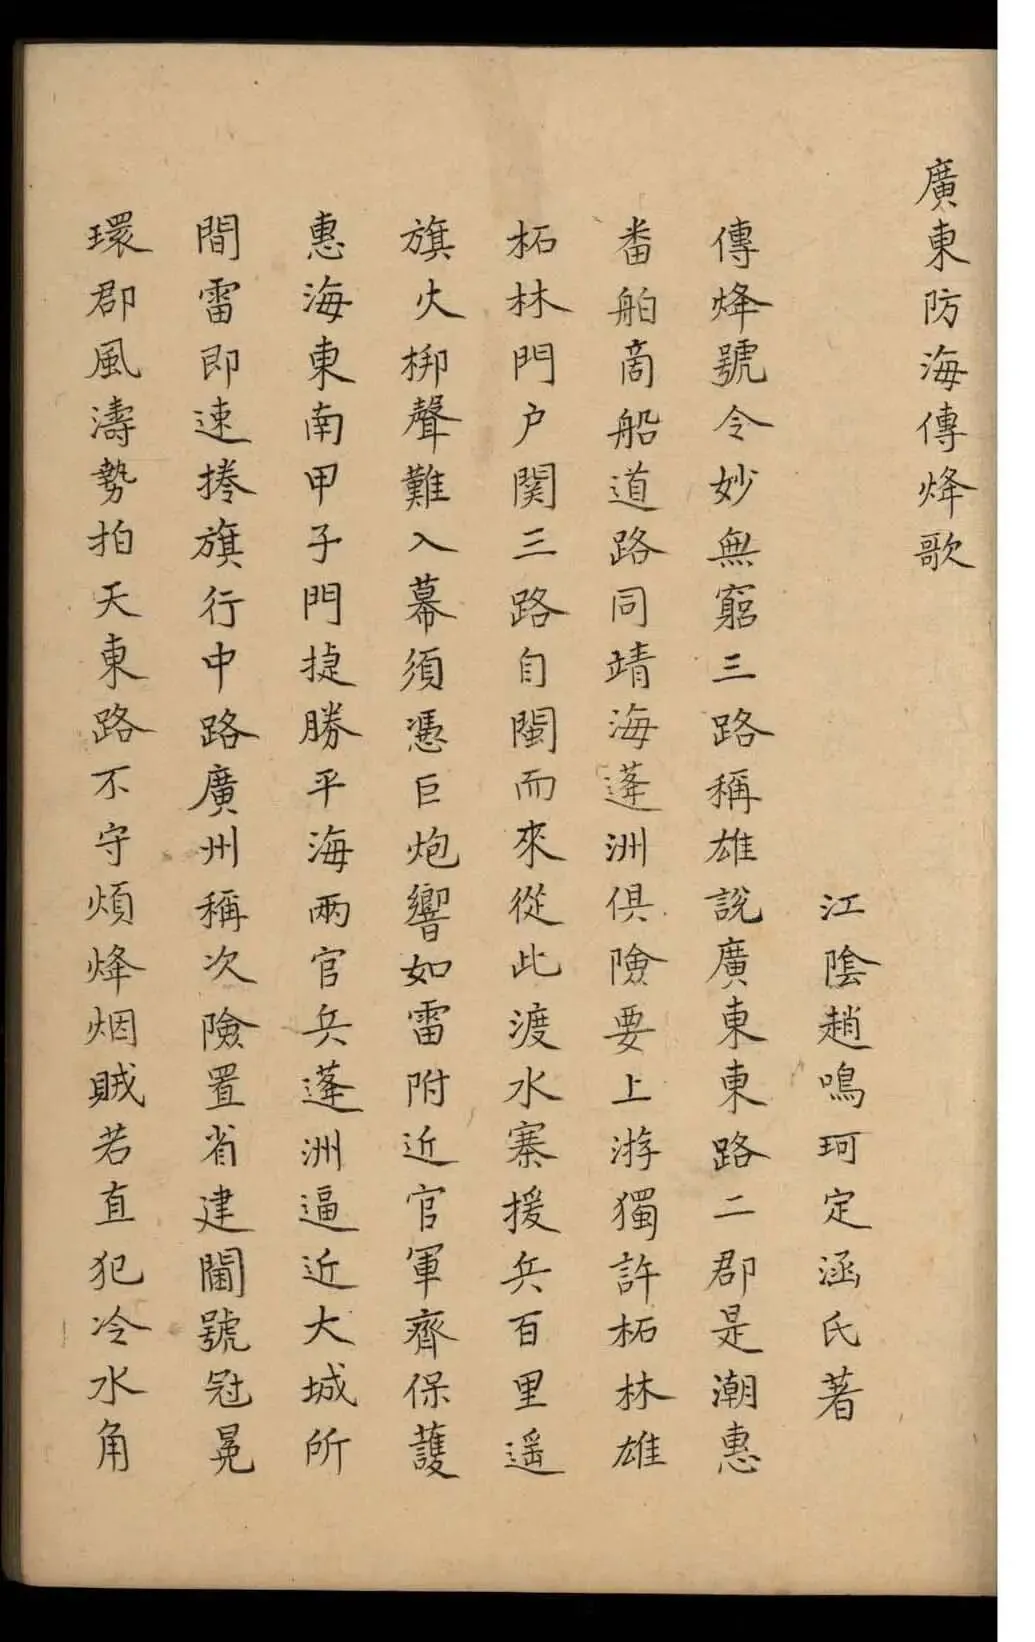 廣東防海傳烽歌
江陰趙鳴珂定涵氏著
傳烽號令妙無窮三路稱雄說廣東東路二郡是潮惠
番舶商船道路同靖海蓬洲俱險要上游獨許柘林雄
柘林門户関三路自閩而來從此渡水寨援兵百里遥
旗火梆聲難入幕須憑巨炮響如雷附近官軍齊保護
惠海東南甲子門捷勝平海兩官兵蓬洲逼近大城所
間雷即速捲旗行中路廣州稱次險置省建閫號冠冕
環郡風濤勢拍天東路不守煩烽烟賊若直犯冷水角